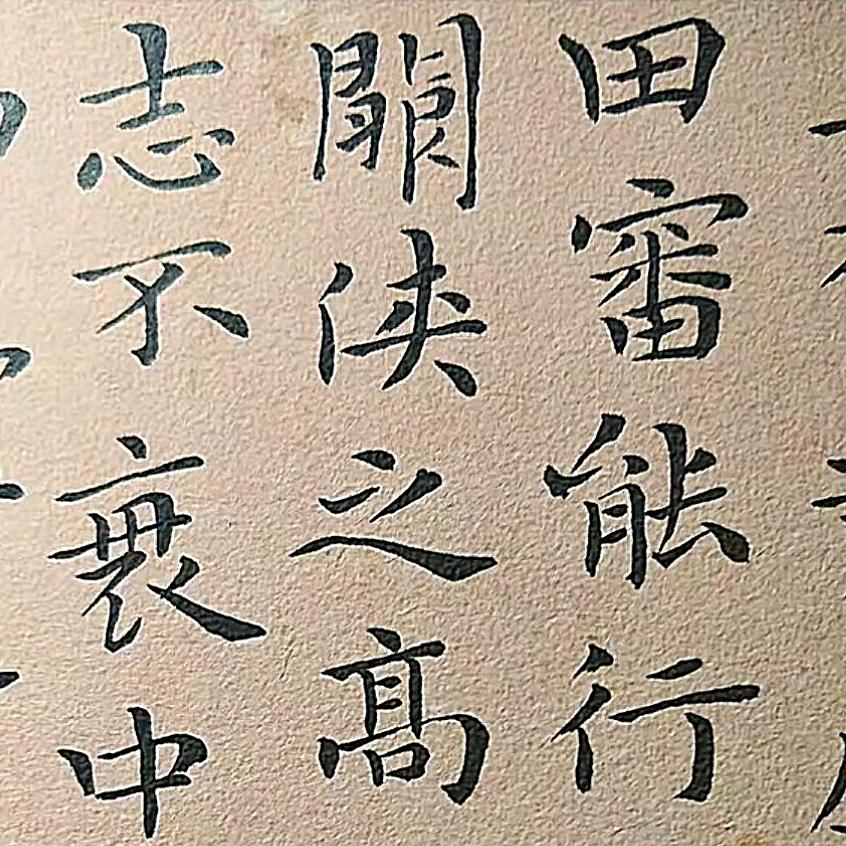 田審能行
關俠之髙
志不衰中